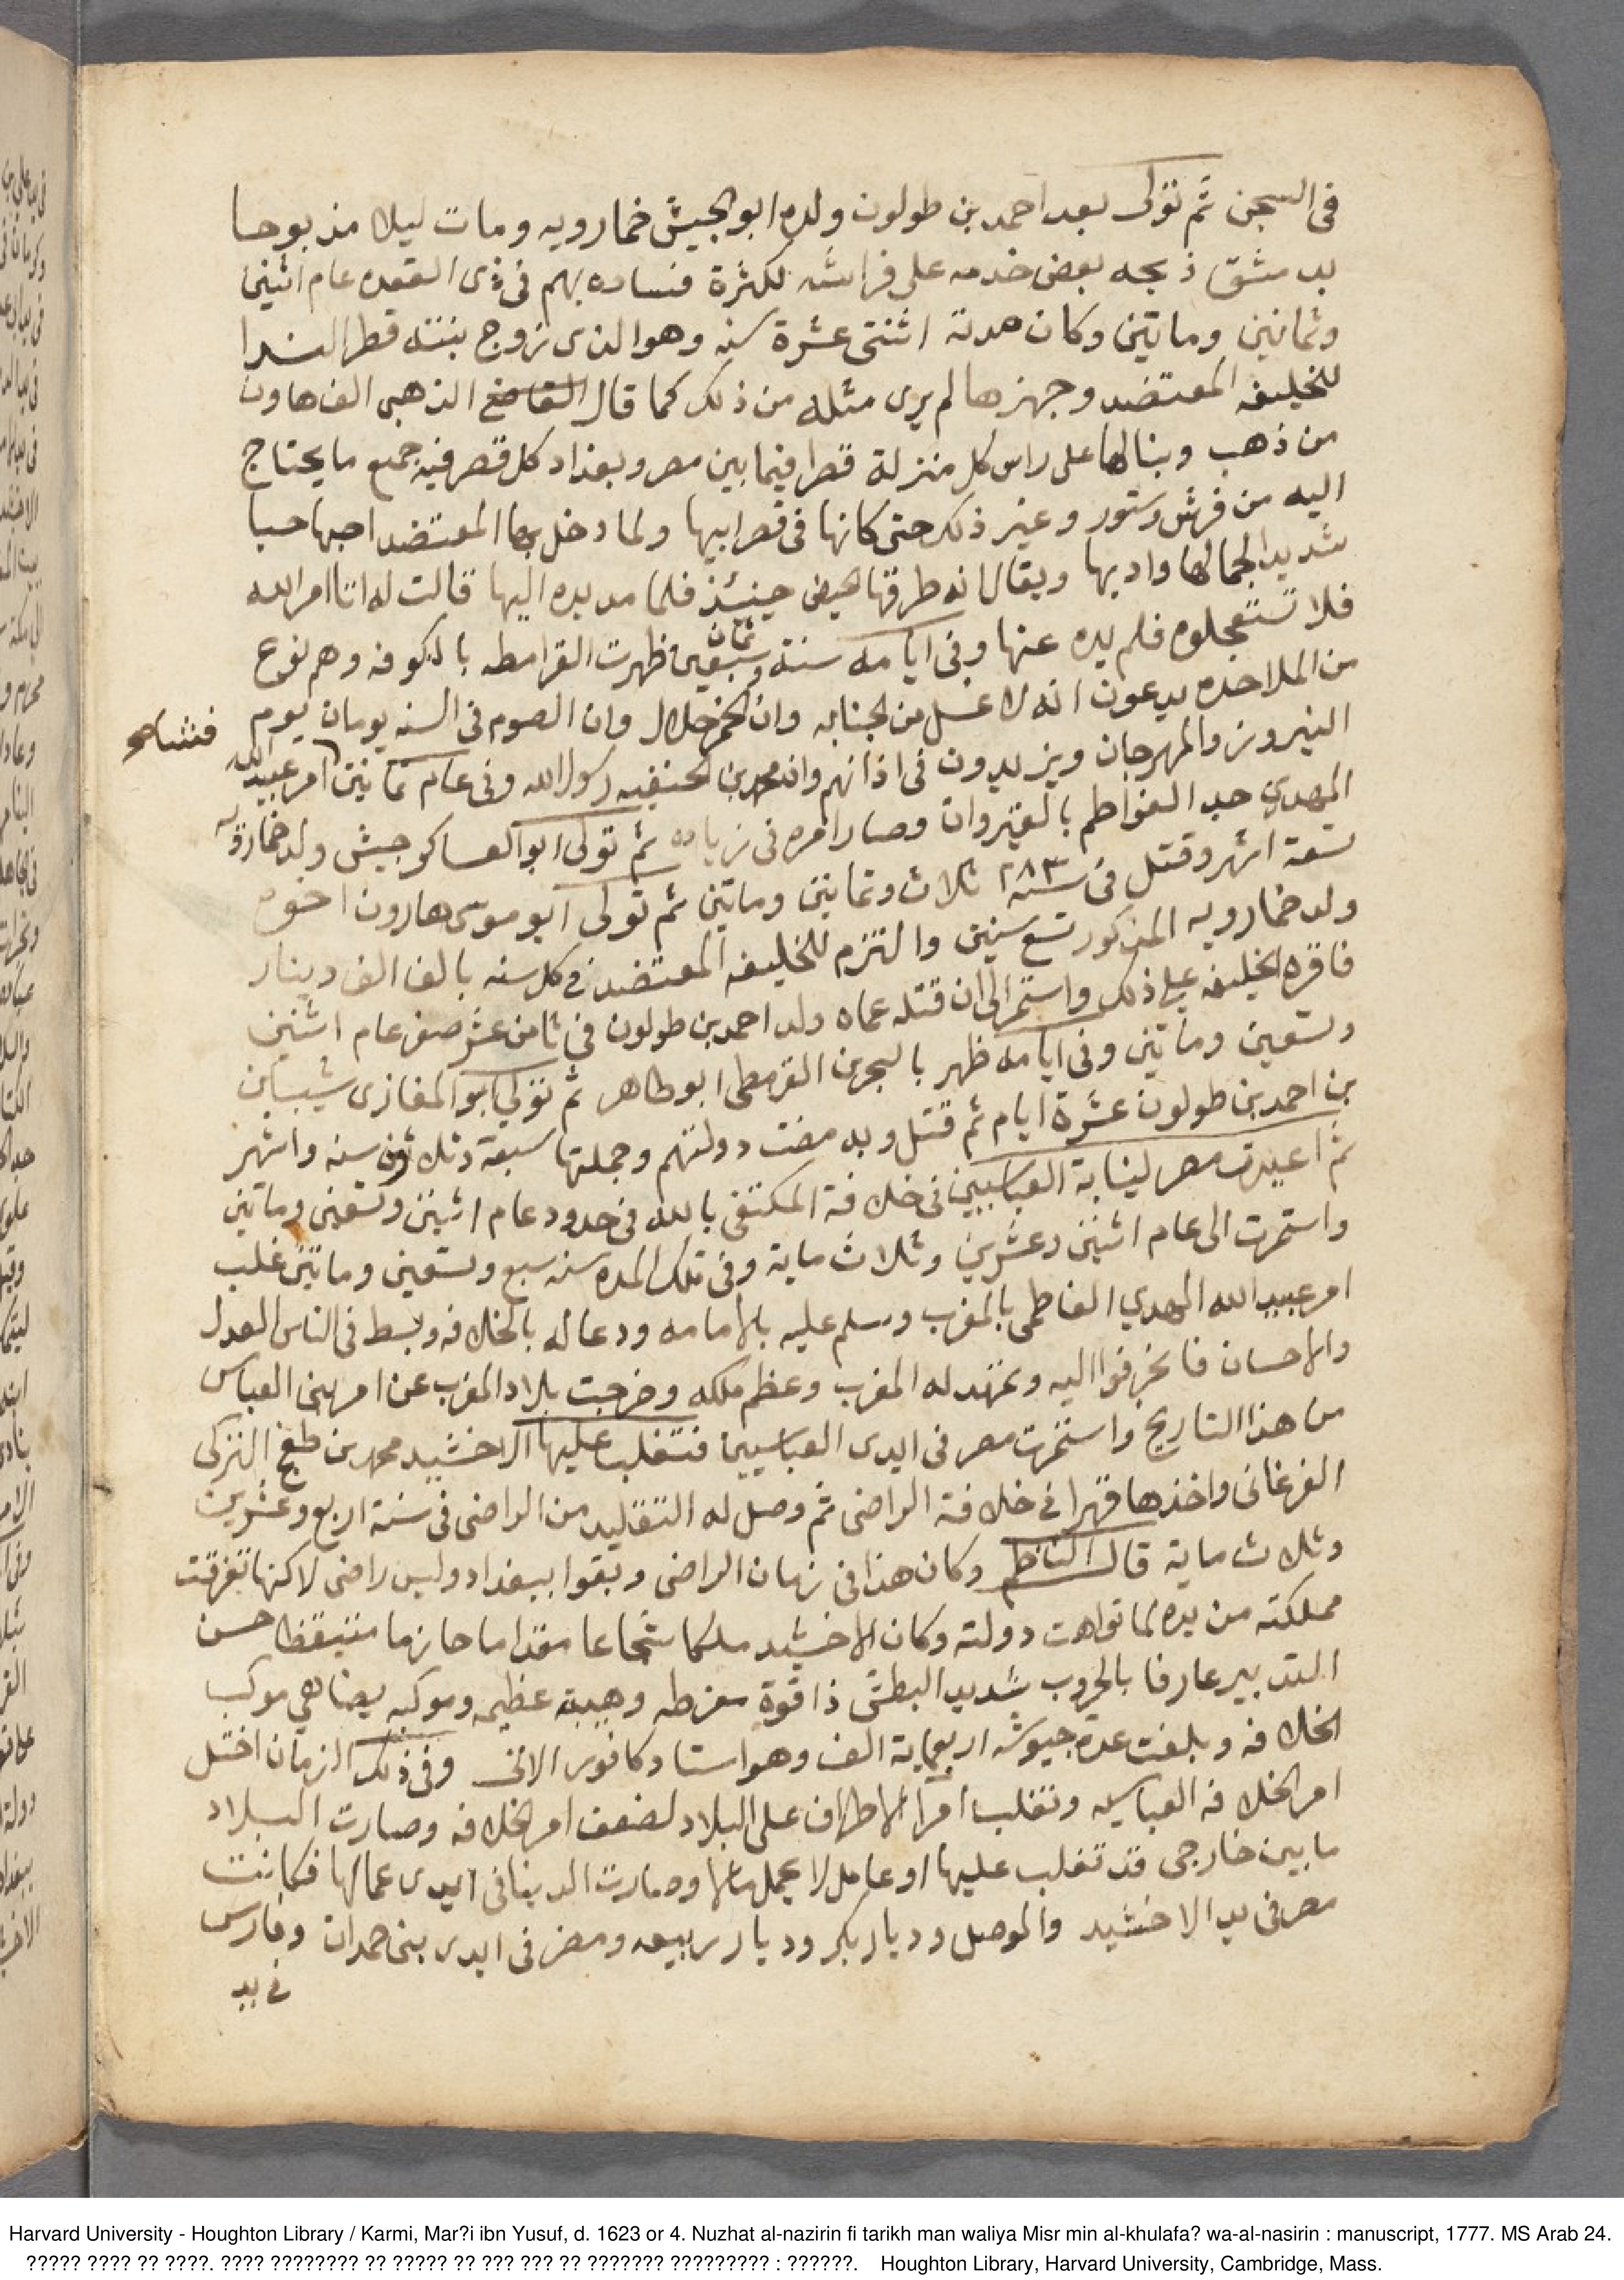 في السجن ثم تولى بعد احمد بن طولون ولده ابو الجيش خمارويه ومات ليلا مذبوحا
بدمشق ذبحه بعض خدمه على فراشه لكثرة فساده بهم في ذى القعده عام اثنين
وثمانين وماتين وكان مدته اثنتى عشرة سنه وهو الذى تزوج بنته قطر الندا
للخليفه المعتضد وجهزها لم يرى مثله من ذلك كما قال القاضي الذهبي الف هاون
من ذهب وبنا لها على راس كل منزلة قصرا فيما بين مصر وبغداد كل قصر فيه جميع ما يحتاج
اليه من فرش وستور وغير ذلك حتى كانها في قصر ابيها ولما دخل بها المعتضد احبها حبا
شديدا لجمالها وادبها ويقال انه طرقها الحيض حينئذ فلما مد يده اليها قالت له اتا امر الله
فلا تستعجلوه فلم يده عنها وفى ايامه سنة ثمان وسبعين ظهرت القرامطه بالكوفه وهم نوع
من الملاحده يدعون انه لا غسل من الجنابه وان الخمر حلال وان الصوم في السنه يومان يوم
النيروز والمهرجان ويزيدون في اذانهم وان محمد بن الحنفيه رسول الله وفي عام ثمانين امر عبيد الله
فشا
المهدي جد الفواطم بالقيروان وصار امره في زياده ثم تولى ابو العساكر جيش ولد خمارويه
تسعة اشهر وقتل في سنة ٢٨٣ ثلاث وثمانين وماتين ثم تولى ابو موسى هارون اخوه
ولد خمارويه المذكور تسع سنين والتزم للخليفه المعتضد في كل سنه بالف الف دينار
فاقره الخليفه علي ذلك واستمر الى ان قتله عماه ولد احمد بن طولون في ثامن عشر صفر عام اثنين
وتسعين وماتين وفي ايامه ظهر بالبحرين القرمطى ابو طاهر ثم تولي ابو المغازى شيبان
بن احمد بن طولون عشرة ايام ثم قتل وبه مضت دولتهم وجملتها سبعة وثلاثون سنه واشهر
ثم اعيدت مصر لنيابة العباسيين في خلافة المكتفى بالله في حدود عام اثنين وتسعين وماتين
واستمرت الى عام اثنين وعشرين وثلاث ماية وفي تلك المده سنه سبع وتسعين وماتين غلب
امر عبيد الله المهدي الفاطمى بالمغرب وسلم عليه بالامامه ودعا له بالخلافه وبسط في الناس العدل
والاحسان فانحرفوا اليه وتمهد له المغرب وعظم ملكه وخرجت بلاد المغرب عن امر بنى العباس
من هذا التاريخ واستمرت مصر في ايدى العباسيين فتغلب عليها الاخشيد محمد بن طغج التركى
الفرغانى واخذها قهرا في خلافة الراضى ثم وصل له التقليد من الراضى في سنة اربع وعشرين
وثلاث ماية قال الناظم وكان هذا في زمان الراضى وبقوا ببغداد وليس راضى لاكنها تفرقت
مملكته من يده لما تواهت دولته وكان الاخشيد ملكا شجاعا مقداما حازما متيقظا حسن
التدبير عارفا بالحروب شديد البطش ذا قوة مفرطه وهيبة عظيمه وموكبه يضاهي موكب
الخلافه وبلغت عدة جيوشه اربعماية الف وهو استاد كافور الاتى وفي ذلك الزمان اختل
امر الخلافه العباسيه وتغلب امرآ الاطراف على البلاد لضعف امر الخلافه وصارت البلاد
ما بين خارجى قد تغلب عليها او عامل لا يحمل مالها وصارت الدينا في ايدى عمالها فكانت
مصر في يد الاخشيد والموصل وديار بكر وديار ربيعه ومضر في ايدى بنى حمدان وفارس
في يد
Harvard University - Houghton Library / Karmi, Mar?i ibn Yusuf, d. 1623 or 4. Nuzhat al-nazirin fi tarikh man waliya Misr min al-khulafa? wa-al-nasirin : manuscript, 1777. MS Arab 24.
????? ???? ?? ????. ???? ???????? ?? ????? ?? ??? ??? ?? ??????? ????????? : ??????. Houghton Library, Harvard University, Cambridge, Mass.